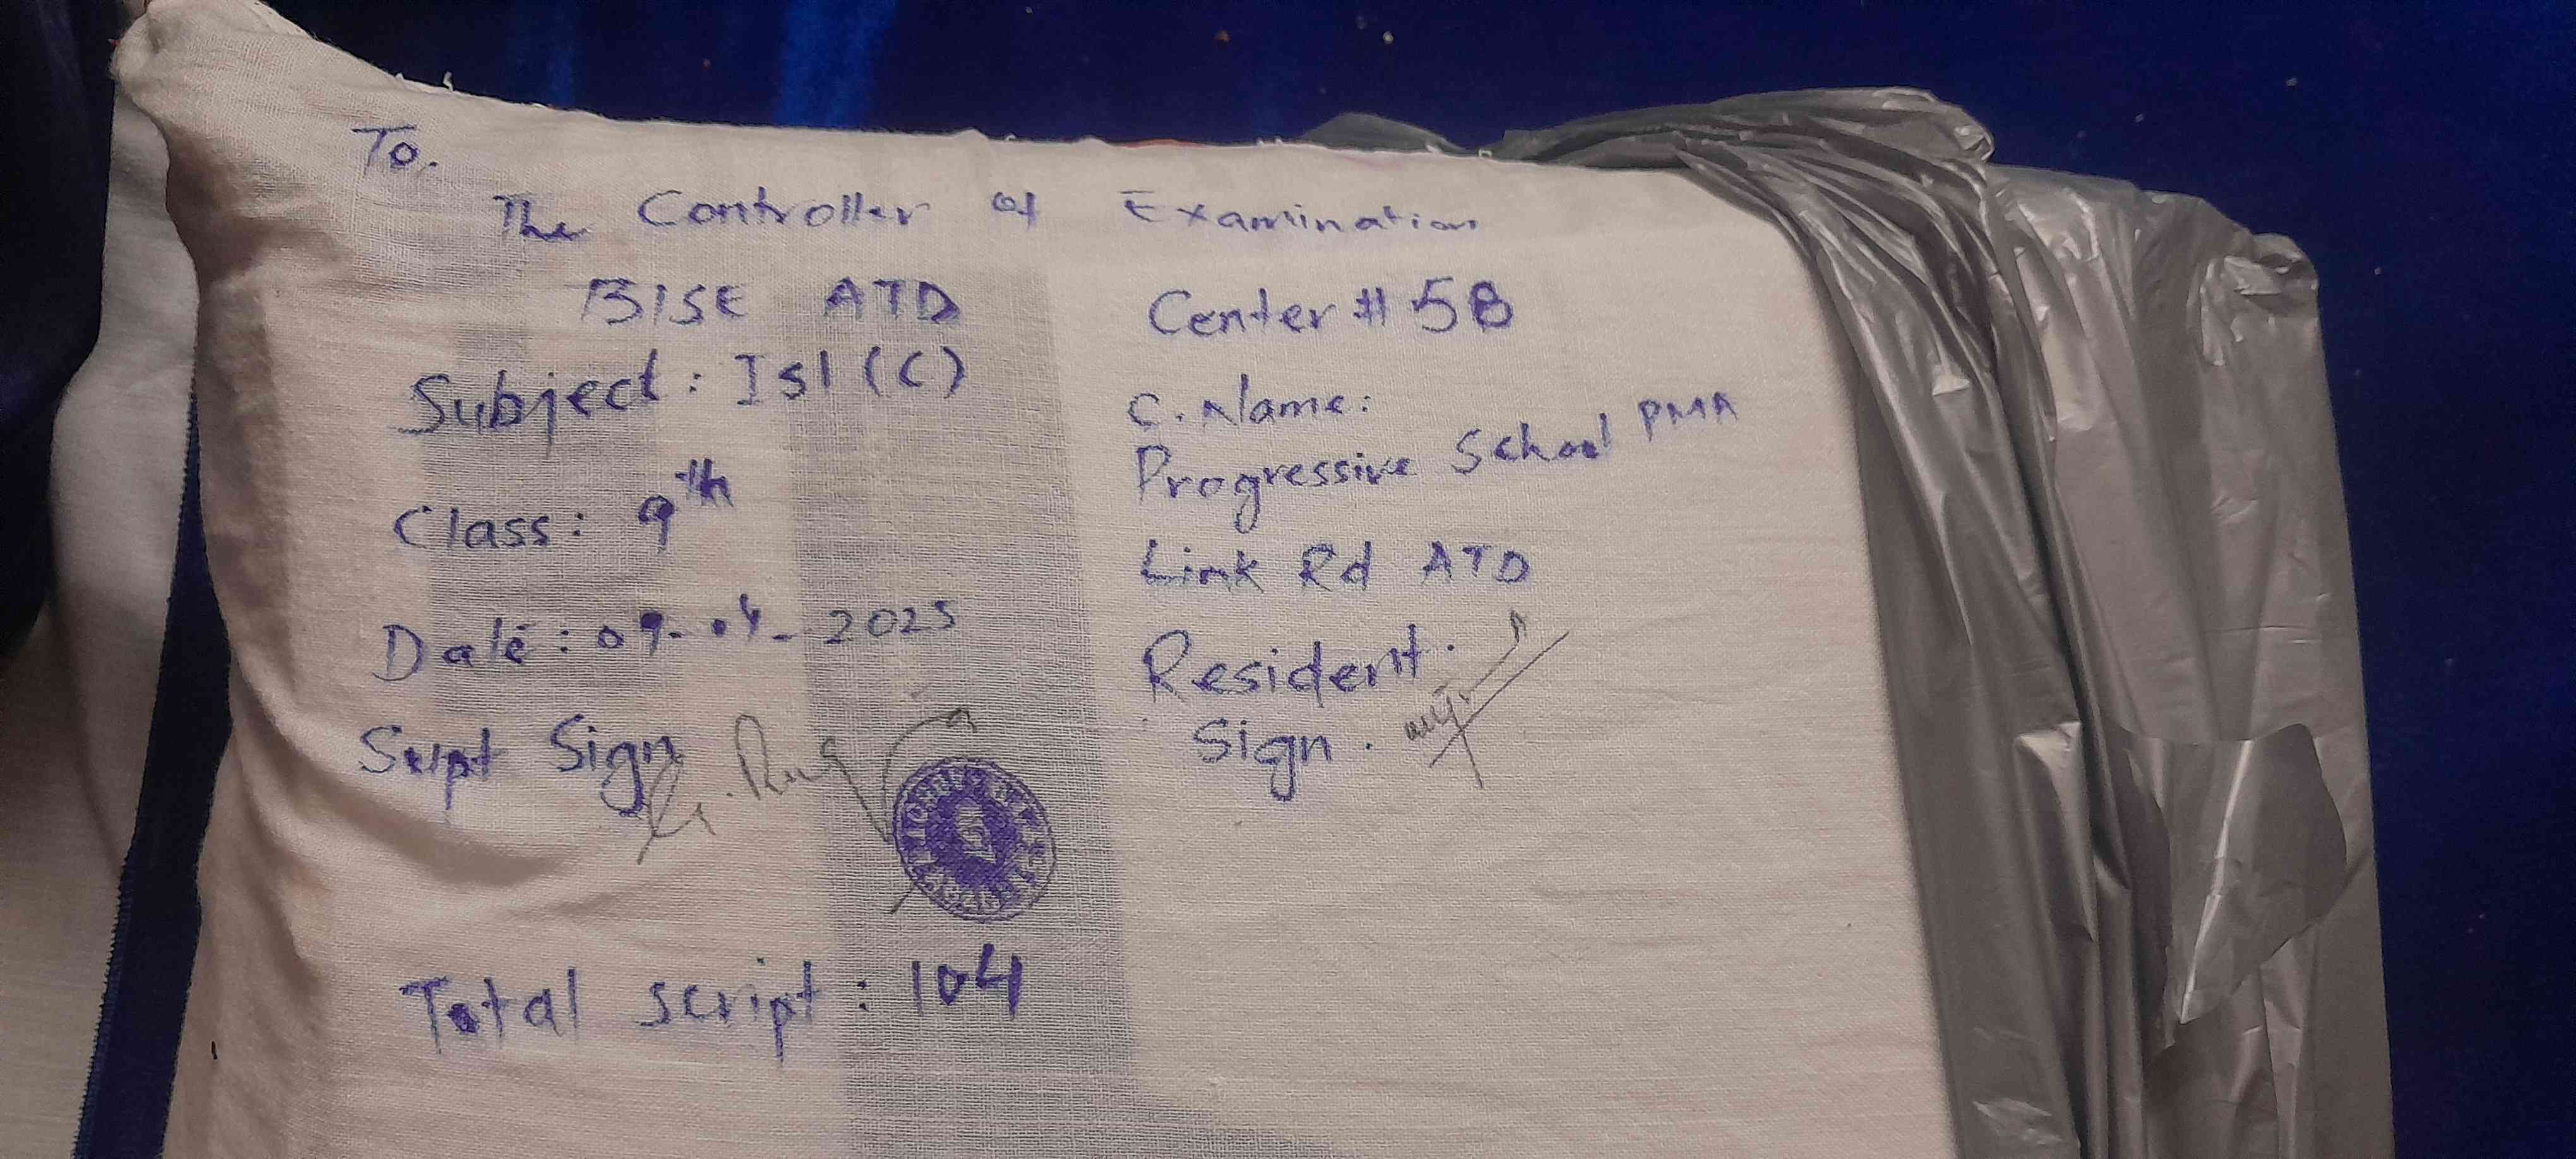 To.
The Controller of Examination
BISE ATD
Subject: Isl (C)
Class: 9th
Date: 09-04-2025
Supt Sign
Total script: 104
Center # 58
C. Name:
Progressive School PMA
Link Rd ATD
Resident.
Sign.